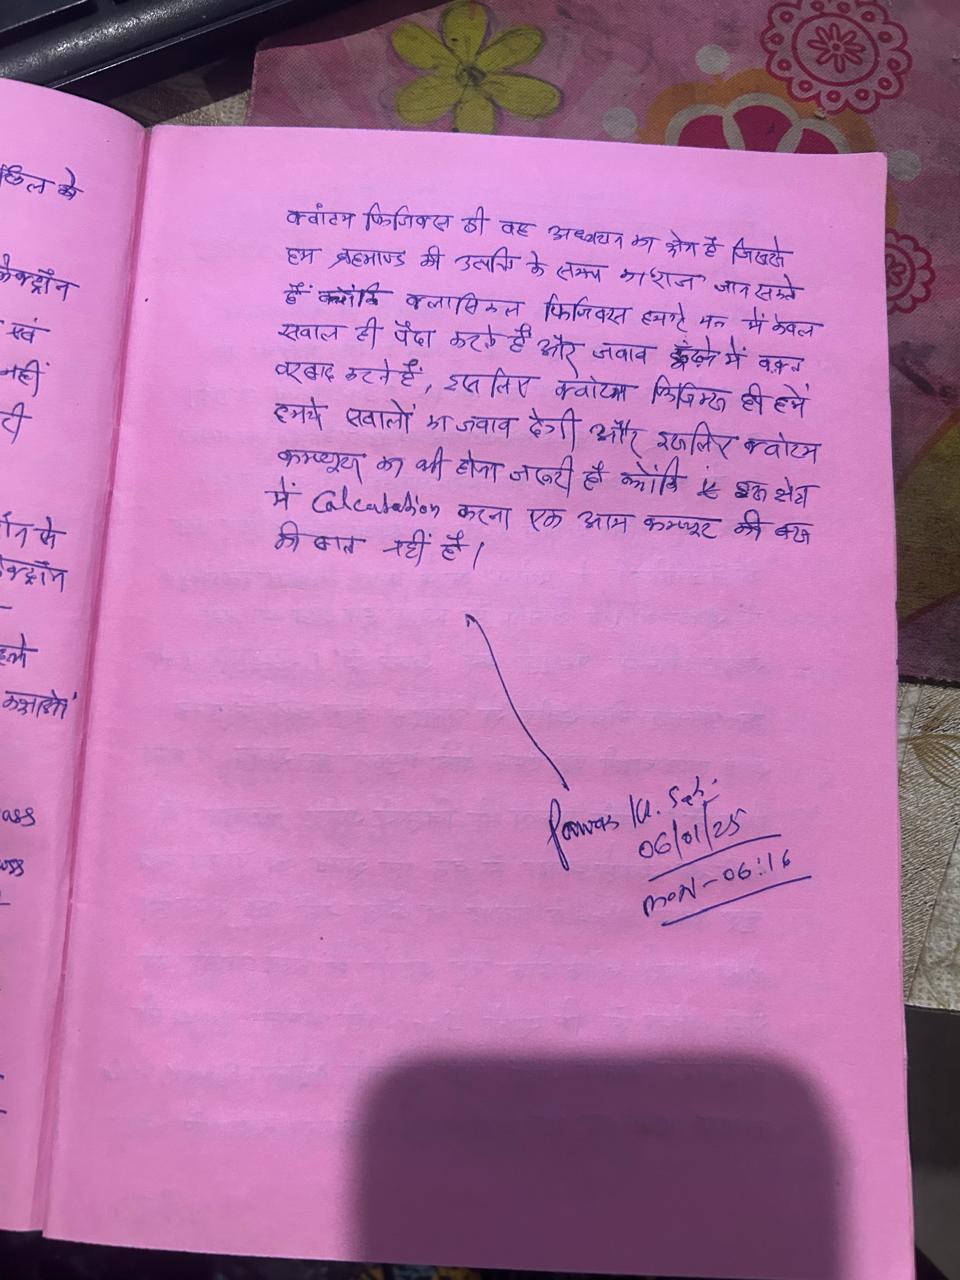 छिल के
क्वांटम फिजिक्स ही वह अध्ययन का क्षेत्र है जिससे
हम ब्रहमाण्ड की उत्पत्ति के समय का राज जान सकते
हैं क्योंकि क्लासिकल फिजिक्स हमारे मन में केवल
सवाल ही पैदा करते हैं और जवाब ढूंढने में वक़्त
बरबाद करते हैं, इस लिए क्वांटम फिजिक्स ही हमें
हमारे सवालों का जवाब देगी और इसलिए क्वांटम
कम्प्यूटर का भी होना जरूरी है क्योंकि इस क्षेत्र
में Calculation करना एक आम कम्प्यूटर की बस
की बात नहीं है।
एवं
नहीं
टी
ass
Ku.
06/01/25
MON - 06:16